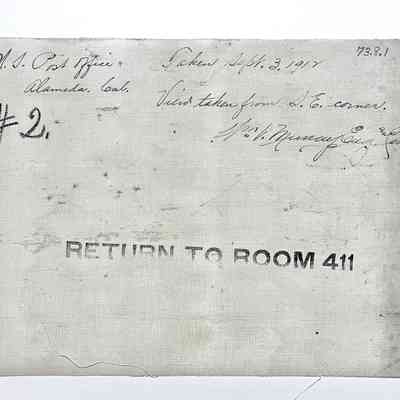 U.S. Post Office
Alameda. Cal.
#2.
Taken Sept. 3, 1912
View taken from S.E. corner.
Wm. N. Murray, Eng.
73.8.1
RETURN TO ROOM 411